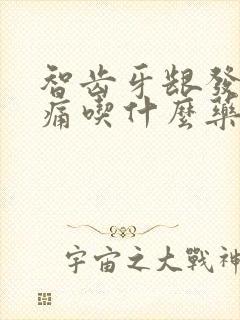 智齿牙龈發
痛喫什麼藥
宇宙之大戰神